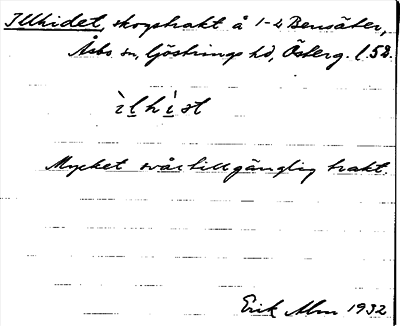 Illhidet, skogstrakt å 1-2 Bensäter,
Åsbo sn, Göstrings hd, Österg. l. 58.
ìlhìst
Mycket svårtillgänglig trakt.
Erik Alm 1932